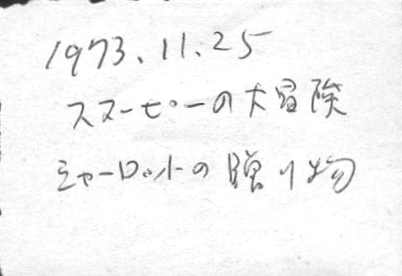 1973.11.25
スヌーピーの大冒険
シャーロットの贈り物